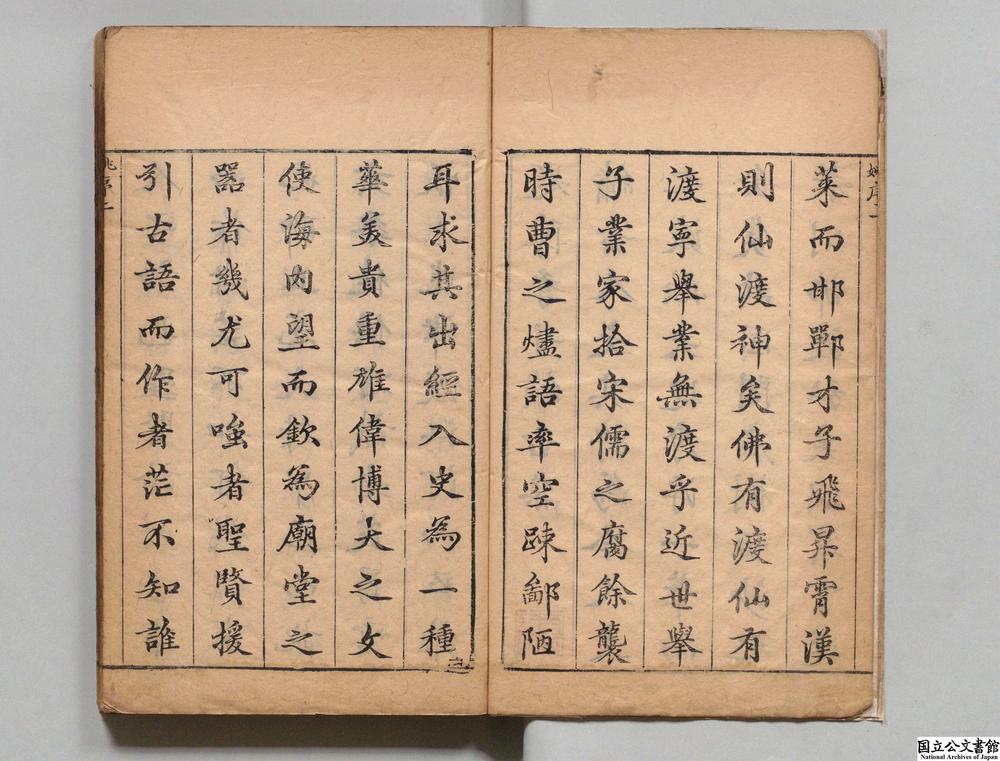 萊而邯鄲才子飛昇霄漢
則仙渡神矣佛有渡仙有
渡寧舉業無渡乎近世舉
子業家拾宋儒之腐餘襲
時曹之燼語率空踈鄙陋
耳求其出經入史為一種
華美貴重雄偉博大之文
使海內望而欽為廟堂之
器者幾尤可嗤者聖賢援
引古語而作者茫不知誰
国立公文書館
National Archives of Japan